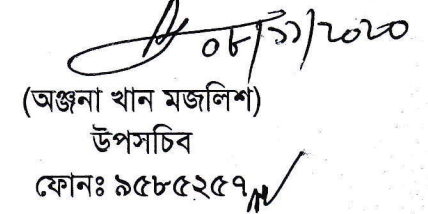 ০৮/১১/২০২০
(অঞ্জনা খান মজলিশ)
উপসচিব
ফোনঃ ৯৫৮৫২৫৭